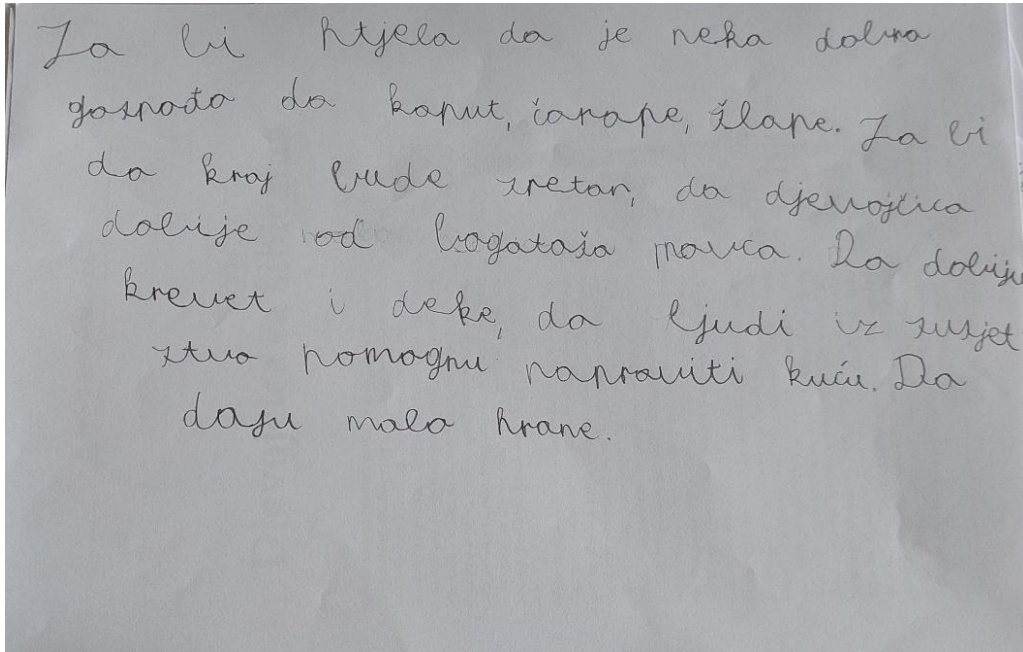 Ja bi htjela da je neka dobra
gospođa da kaput, čarape, žlape. Ja bi
da kraj bude sretan, da djevojčica
dobije od bogataša novca. Da dobiju
krevet i deke, da ljudi iz susjet
stva pomognu napraviti kuću. Da
daju malo hrane.